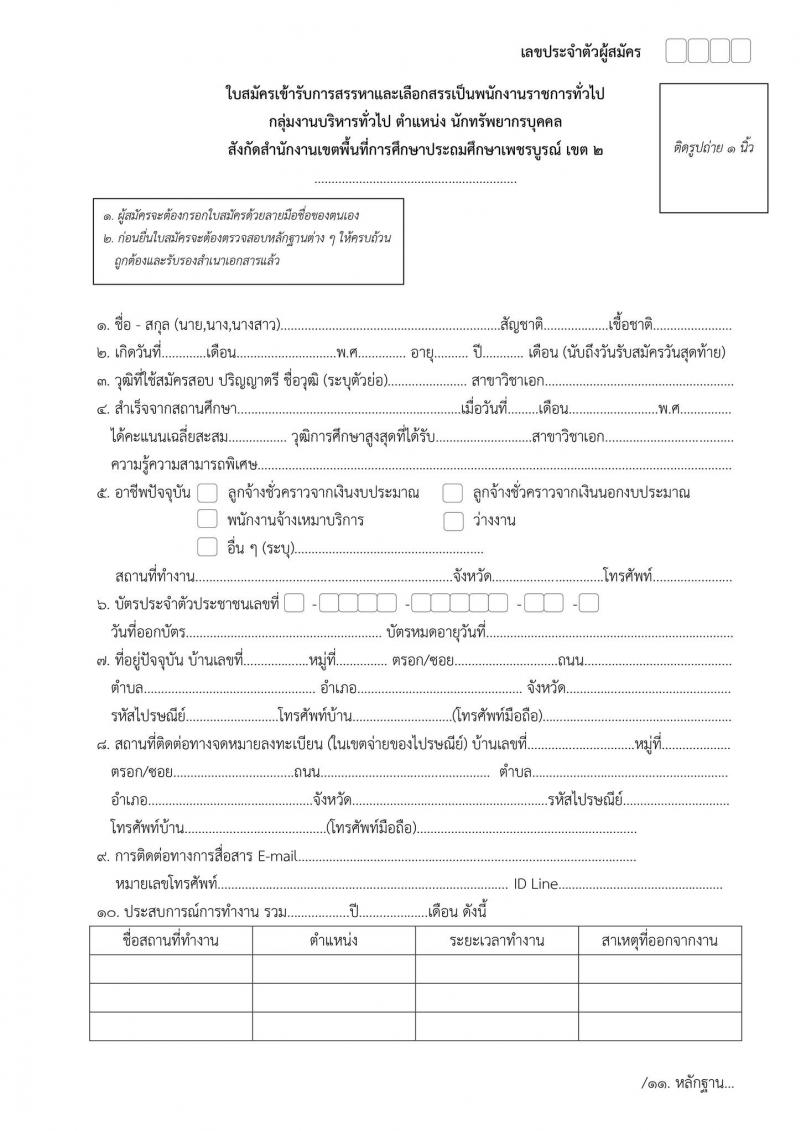 เลขประจำตัวผู้สมัคร
ใบสมัครเข้ารับการสรรหาและเลือกสรรเป็นพนักงานราชการทั่วไป
กลุ่มงานบริหารทั่วไป ตำแหน่ง นักทรัพยากรบุคคล
สังกัดสำนักงานเขตพื้นที่การศึกษาประถมศึกษาเพชรบูรณ์ เขต ๒
...........................................................
ติดรูปถ่าย ๑ นิ้ว
๑. ผู้สมัครจะต้องกรอกใบสมัครด้วยลายมือชื่อของตนเอง
๒. ก่อนยื่นใบสมัครจะต้องตรวจสอบหลักฐานต่าง ๆ ให้ครบถ้วน
ถูกต้องและรับรองสำเนาเอกสารแล้ว
๑. ชื่อ - สกุล (นาย,นาง,นางสาว)................................................................สัญชาติ...................เชื้อชาติ.......................
๒. เกิดวันที่.............เดือน.............................พ.ศ.............. อายุ.......... ปี............ เดือน (นับถึงวันรับสมัครวันสุดท้าย)
๓. วุฒิที่ใช้สมัครสอบ ปริญญาตรี ชื่อวุฒิ (ระบุตัวย่อ)....................... สาขาวิชาเอก.......................................................
๔. สำเร็จจากสถานศึกษา.................................................................เมื่อวันที่.........เดือน..........................พ.ศ...............
ได้คะแนนเฉลี่ยสะสม................. วุฒิการศึกษาสูงสุดที่ได้รับ............................สาขาวิชาเอก.....................................
ความรู้ความสามารถพิเศษ..........................................................................................................................................
๕. อาชีพปัจจุบัน ลูกจ้างชั่วคราวจากเงินงบประมาณ ลูกจ้างชั่วคราวจากเงินนอกงบประมาณ
พนักงานจ้างเหมาบริการ ว่างงาน
อื่น ๆ (ระบุ).......................................................
สถานที่ทำงาน...........................................................................จังหวัด................................โทรศัพท์.......................
๖. บัตรประจำตัวประชาชนเลขที่ - - - -
วันที่ออกบัตร......................................................... บัตรหมดอายุวันที่........................................................................
๗. ที่อยู่ปัจจุบัน บ้านเลขที่...................หมู่ที่............... ตรอก/ซอย..............................ถนน...........................................
ตำบล.................................................. อำเภอ................................................ จังหวัด................................................
รหัสไปรษณีย์...........................โทรศัพท์บ้าน.............................(โทรศัพท์มือถือ).......................................................
๘. สถานที่ติดต่อทางจดหมายลงทะเบียน (ในเขตจ่ายของไปรษณีย์) บ้านเลขที่...............................หมู่ที่....................
ตรอก/ซอย...................................ถนน................................................. ตำบล.........................................................
อำเภอ................................................จังหวัด.........................................................รหัสไปรษณีย์...............................
โทรศัพท์บ้าน.........................................(โทรศัพท์มือถือ)................................................................
๙. การติดต่อทางการสื่อสาร E-mail..................................................................................................
หมายเลขโทรศัพท์..................................................................................... ID Line................................................
๑๐. ประสบการณ์การทำงาน รวม..................ปี....................เดือน ดังนี้
ชื่อสถานที่ทำงาน ตำแหน่ง ระยะเวลาทำงาน สาเหตุที่ออกจากงาน
/๑๑. หลักฐาน...